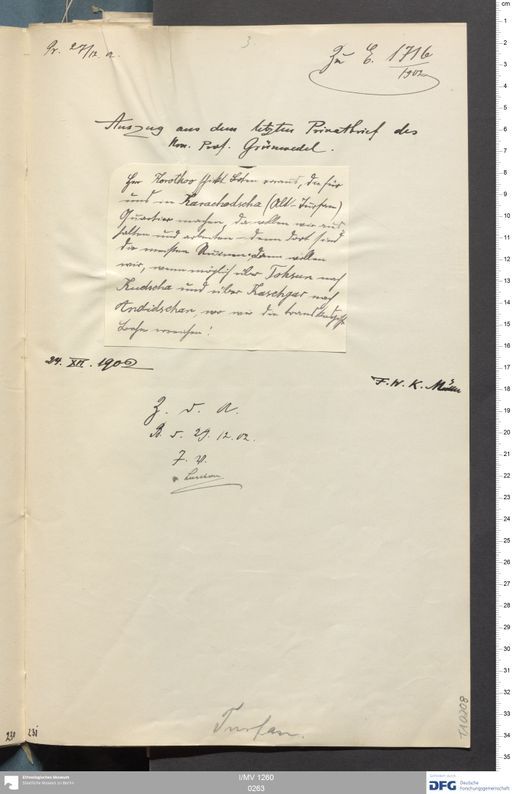 Pr. 27/12 02.
3.
Zu E. 1716/1902
Auszug aus dem letzten Privatbrief des
Hrn. Prof. Grünwedel.
Herr Korotkoo schickt Boten voraus, die für
uns in Karachodscha (Alt-Turfan)
Quartier machen, da wollen wir uns
halten und arbeiten denn dort sind
die meisten Ruinen, dann wollen
wir, wenn möglich über Toksun nach
Kudscha und über Kaschgar nach
Andidschan, wo wir die
Bahn erreichen!
24. XII. 1902
F. W. K. Müller
Z. d. A.
B. d. 29. 12. 02.
J. V.
Turfan.
230
231
TA0208
Ethnologisches Museum
Staatliche Museen zu Berlin
I/MV 1260
0263
Gefördert durch
DFG Deutsche
Forschungsgemeinschaft
cm
1
2
3
4
5
6
7
8
9
10
11
12
13
14
15
16
17
18
19
20
21
22
23
24
25
26
27
28
29
30
31
32
33
34
35